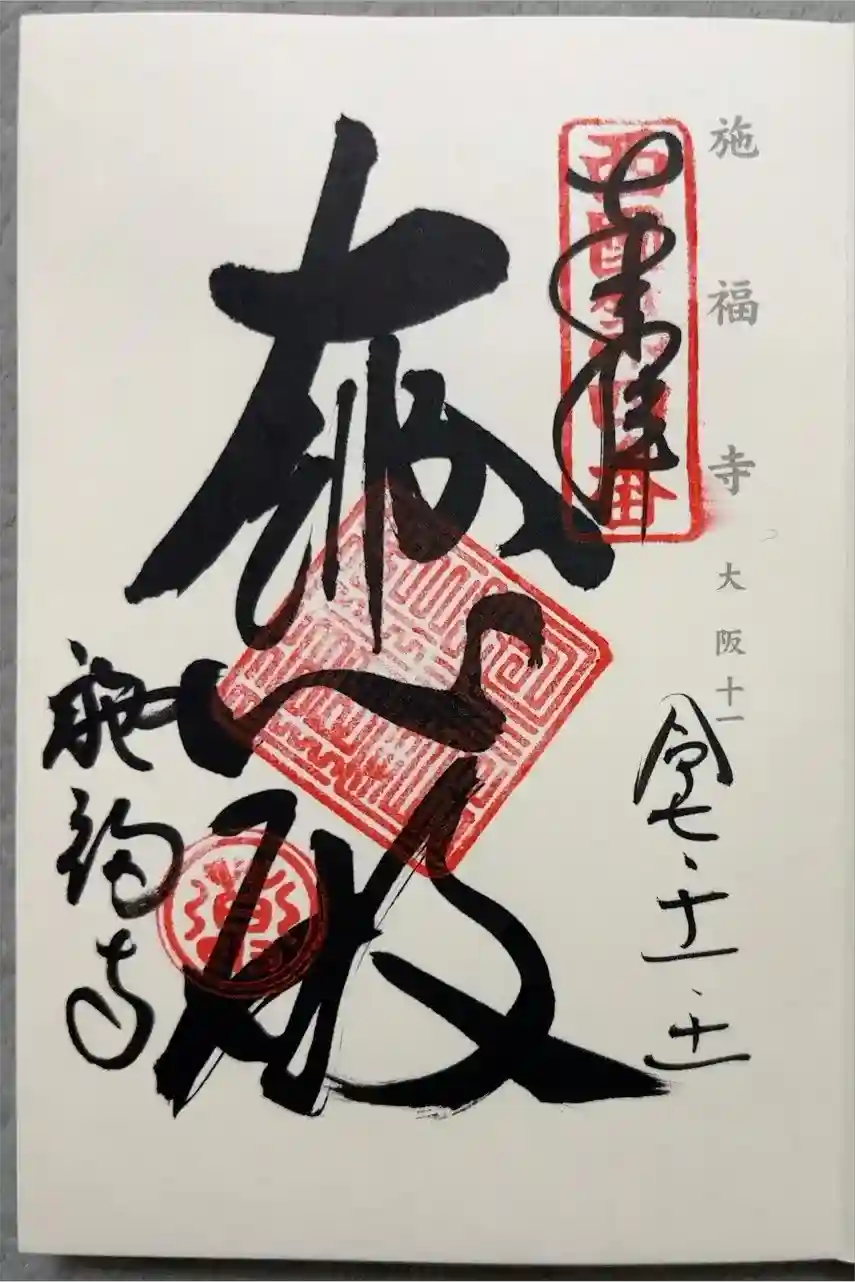 施福寺 大阪十一
西國第四番
奉拝
令七・十一・十一
大悲殿
施福寺